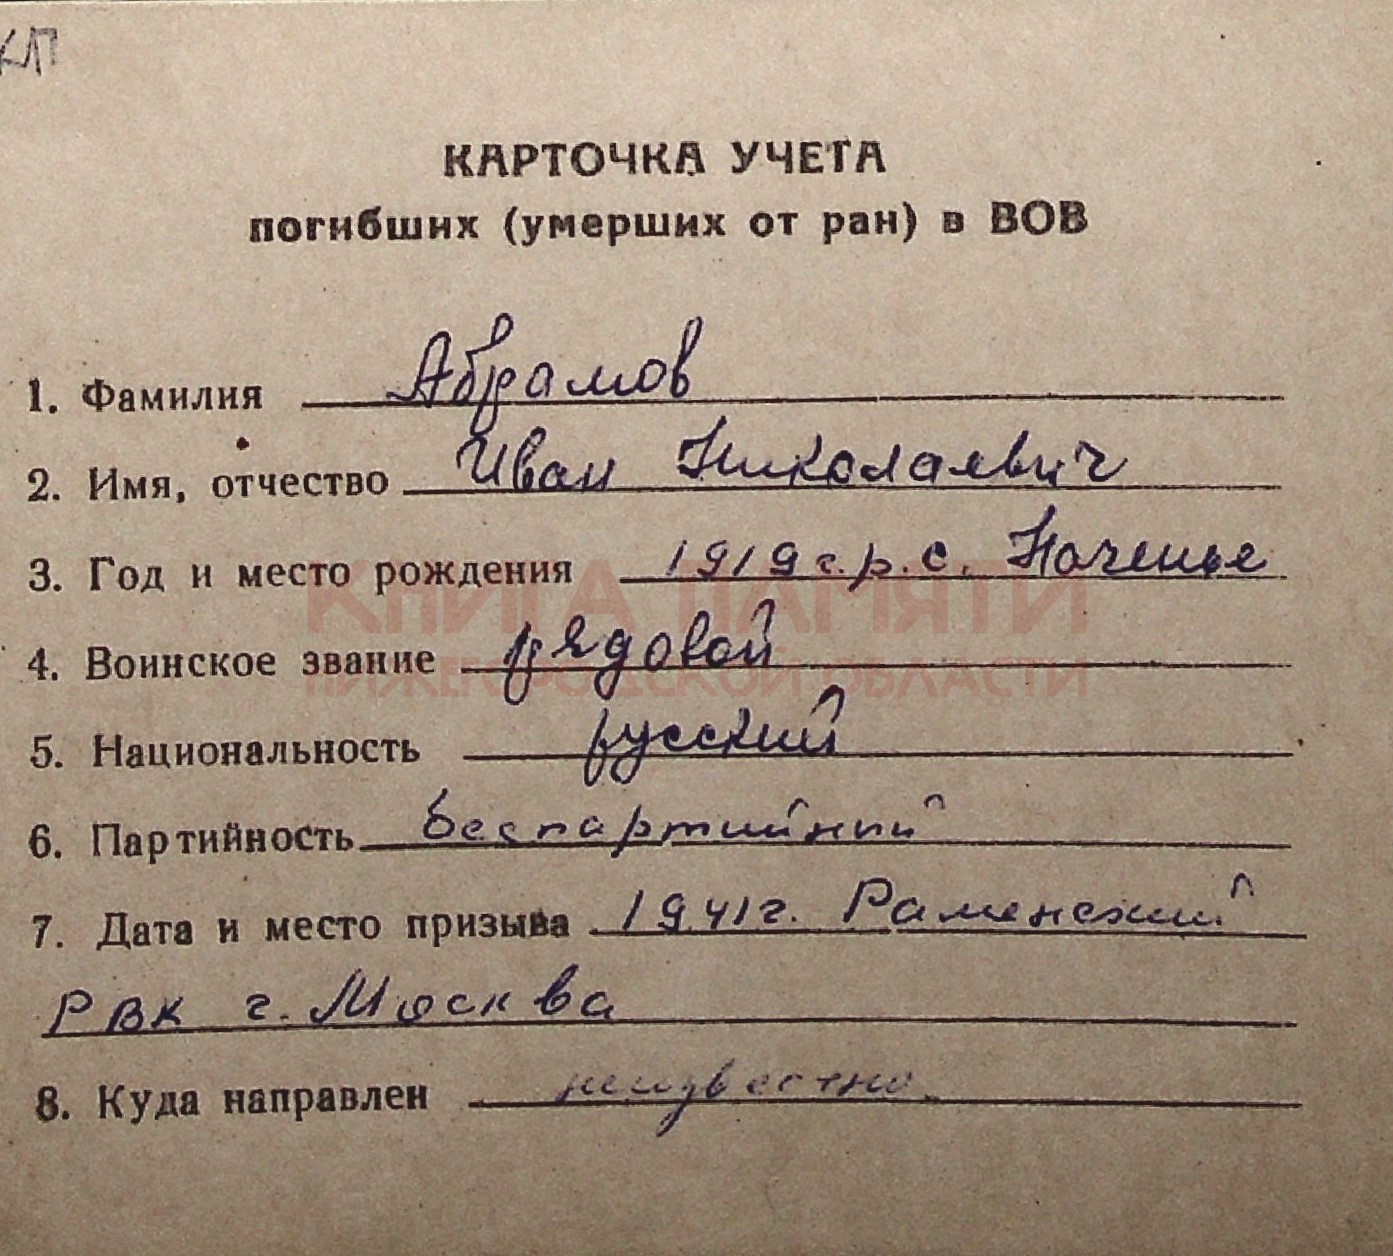 КП
КАРТОЧКА УЧЕТА
погибших (умерших от ран) в ВОВ
1. Фамилия Абрамов
2. Имя, отчество Иван Николаевич
3. Год и место рождения 1919 г.р. с. Ноченье
КНИГА ПАМЯТИ
4. Воинское звание рядовой
НИЖЕГОРОДСКОЙ ОБЛАСТИ
5. Национальность русский
6. Партийность беспартийный
7. Дата и место призыва 1941г. Раменский
РВК г. Москва
8. Куда направлен неизвестно